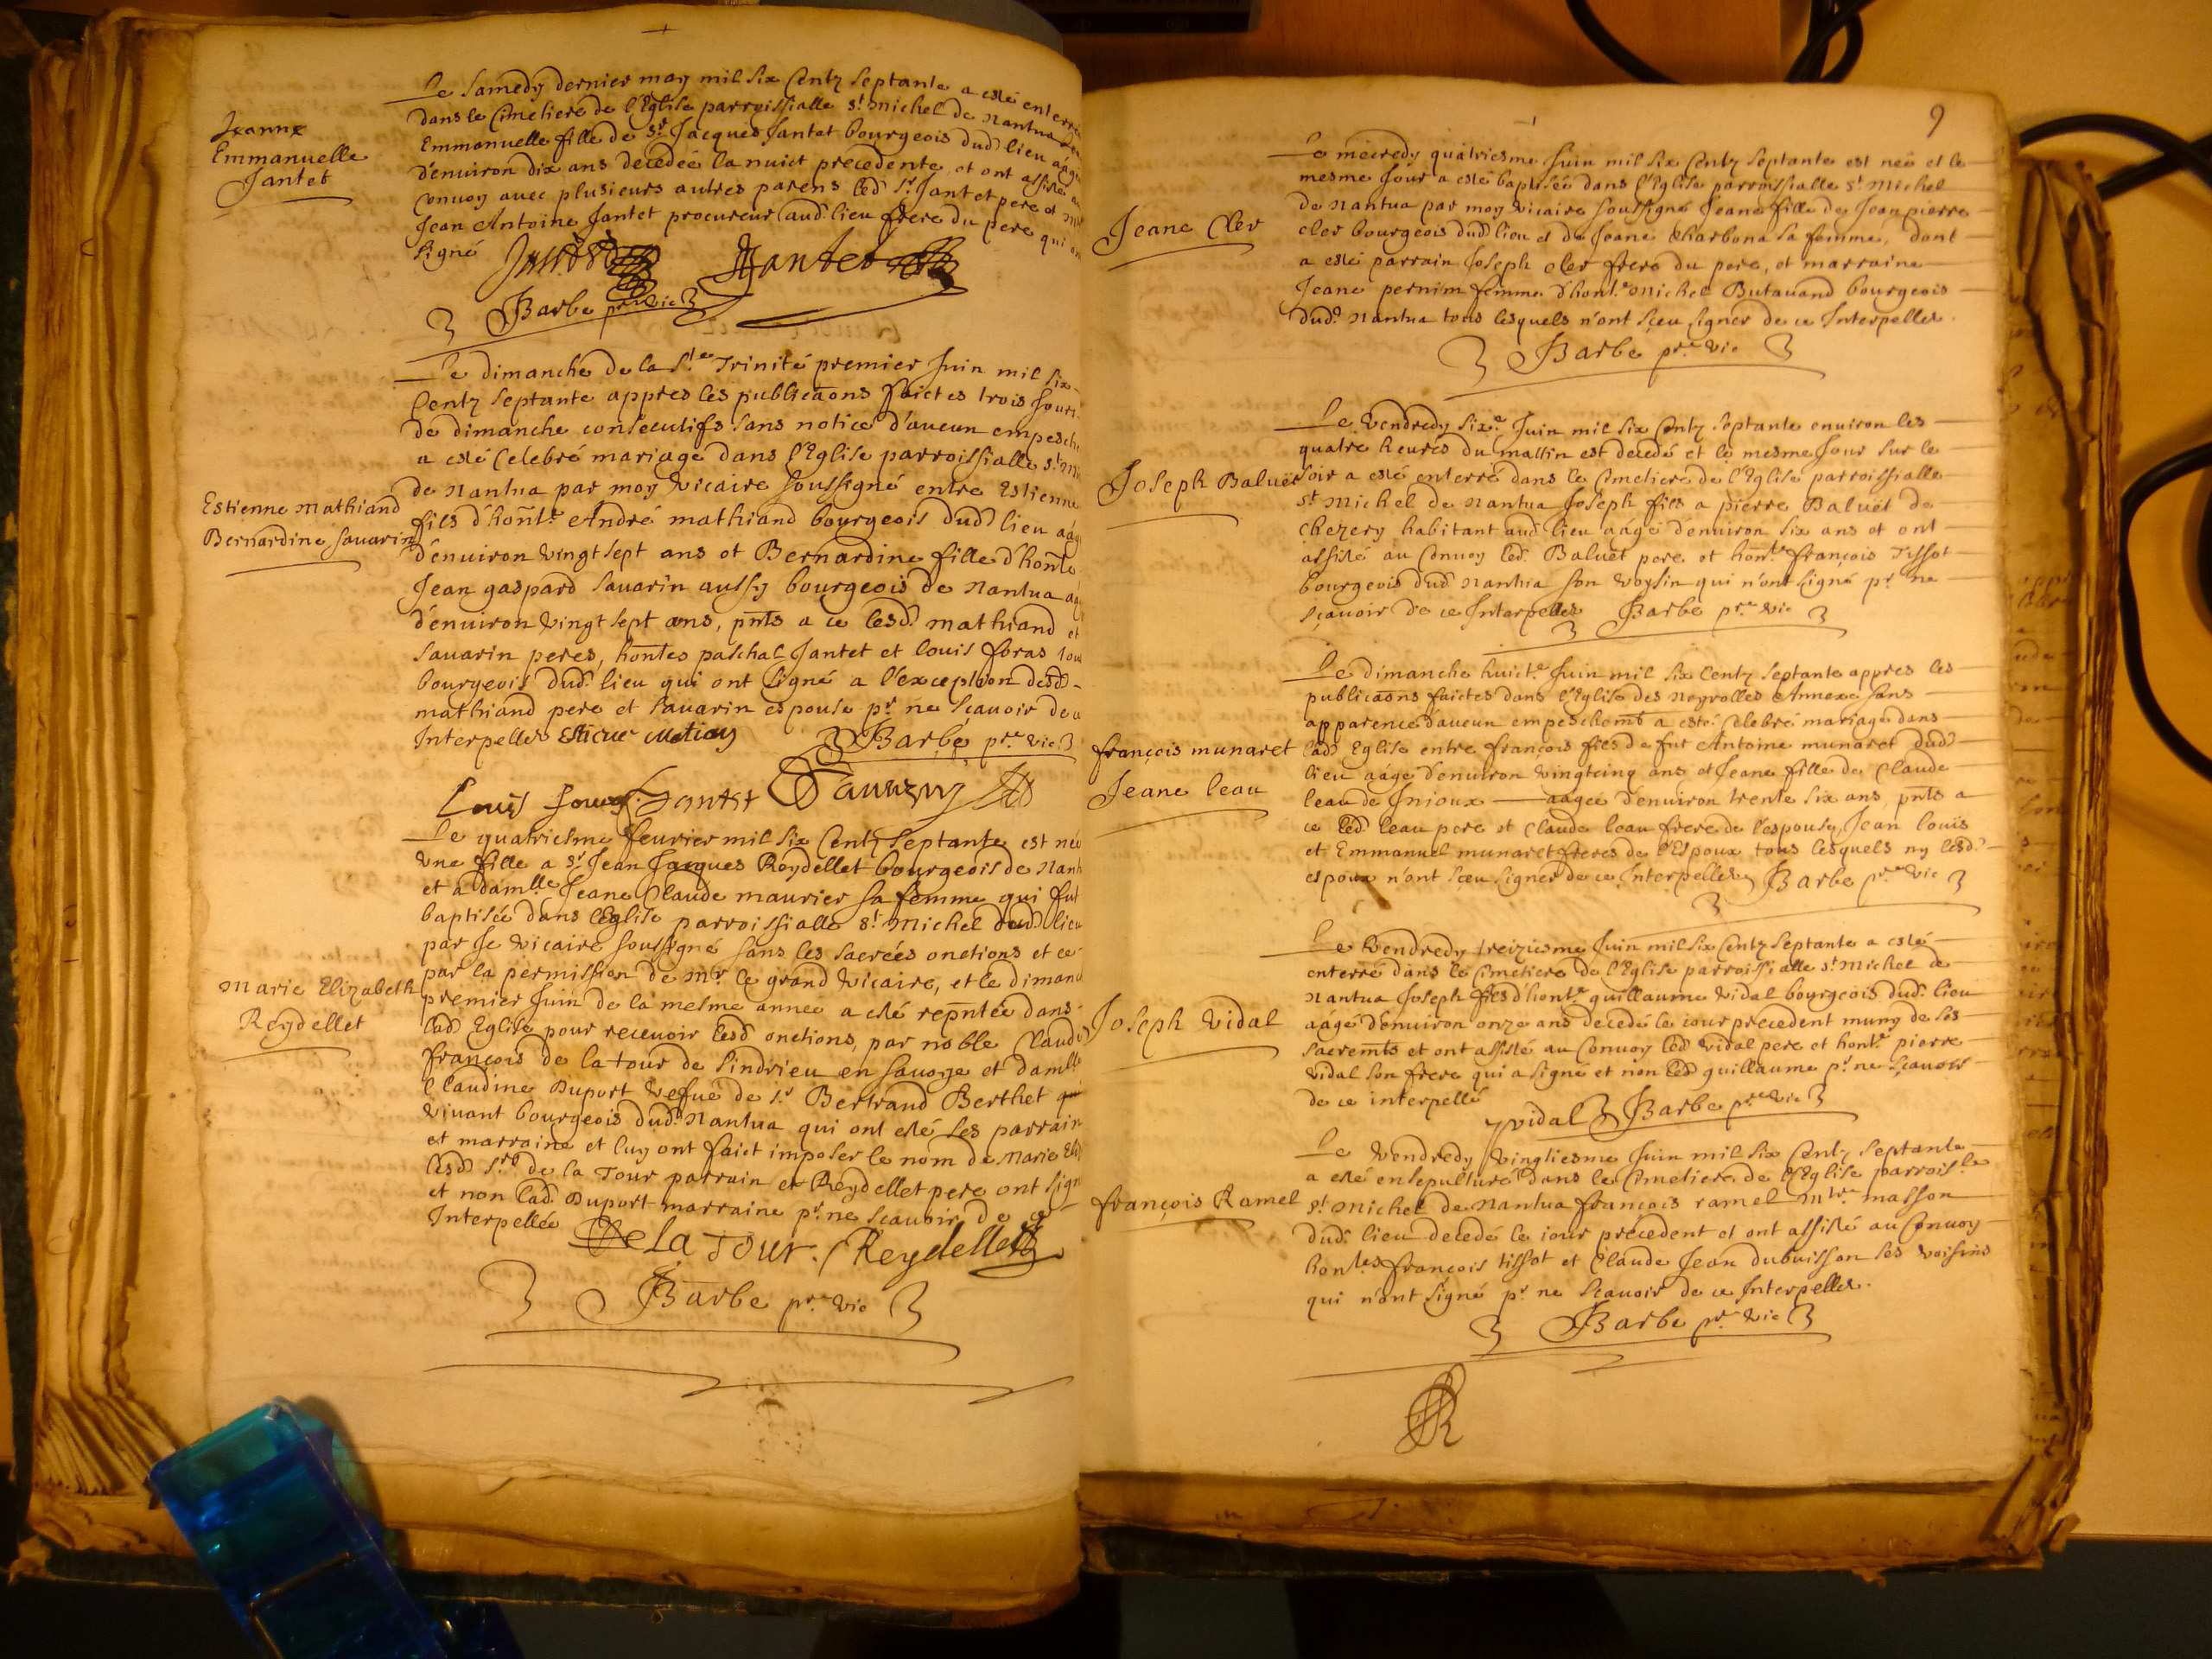 Jeanne
Emmanuelle
Jantet
Le samedy dernier may mil six centz septante a esté enterrée
dans le cimetiere de l'Eglise parroissialle st michel de nantua
Emmanuelle fille de sr Jacques Jantet bourgeois dud lieu aágée
d'enuiron dix ans decedée la nuict precedente, et ont assisté au
conuoy auec plusieurs autres parens led sr Jantet pere et
Jean Antoine Jantet procureur aud. lieu frere du pere qui ont
signé
Jantet
Barbe pre vic
Estienne mathiand
Bernardine sauarin
Le dimanche de la Ste Trinité premier Juin mil six
centz septante appres les publicaōns faictes trois Jours
de dimanche consecutifs sans notice d'aucun empesche
a esté celebré mariage dans l'Eglise parroissialle st mi
de nantua par moy vicaire soussigné entre Estienne
fils d'honte André mathiand bourgeois dud lieu aág
d'enuiron vingt sept ans et Bernardine fille d'honte
Jean gaspard sauarin aussy bourgeois de nantua aá
d'enuiron vingt sept ans, pnts a ce lesd mathiand et
sauarin peres, hontes paschal Jantet et louis foras tous
bourgeois dud. lieu qui ont signé a l'exception desd
mathiand pere et sauarin espouse pr ne sçauoir de ce
Interpelles
Barbe pre vic
Louis Jantet
marie Elizabeth
Reydellet
Le quatriesme feurier mil six centz septante est née
vne fille a sr Jean Jacques Reydellet bourgeois de Nant
et a damlle Jeane Claude maurier sa femme qui fut
baptisée dans l'Eglise parroissialle st michel dud lieu
par Je vicaire soussigné sans les sacrées onctions et ce
par la permission de mr le grand vicaire, et le dimanc
premier Juin de la mesme année a esté repntée dans
lad Eglise pour receuoir lesd onctions, par noble Claude
françois de la tour de sindrieu en sauoye et damlle
Claudine Duport vefue de sr Bertrand Berthet qui
viuant bourgeois dud. Nantua qui ont esté ses parrain
et marraine et luy ont faict imposer le nom de marie Eli
lesd srs de la Tour parrain et Reydellet pere ont sign
et non lad. Duport marraine pr ne sçauoir de ce
Interpellée
De la Tour. Reydellet
Barbe pre vic
9
Jeane Cler
Le mecredy quatriesme Juin mil six centz septante est née et le
mesme Jour a esté baptisée dans l'Eglise parroissialle st michel
de nantua par moy vicaire soussigné Jeane fille de Jean pierre
cler bourgeois dud lieu et de Jeane Charbona sa femme, dont
a esté parrain Joseph cler frere du pere, et marraine
Jeane pernim femme d'hont.e michel Butauand bourgeois
dud. nantua tous lesquels n'ont sçeu signer de ce Interpelles.
Barbe pre vic
Joseph Baluët
Le vendredy sixe Juin mil six centz septante enuiron les
quatre heures du mattin est decedé et le mesme Jour sur le
soir a esté enterré dans le cimetiere de l'Eglise parroissialle
st michel de nantua Joseph fils a pierre Baluët de
chezery habitant aud lieu aágé d'enuiron six ans et ont
assisté au conuoy led. Baluët pere et honte françois Tissot
bourgeois dud nantua son voysin qui n'ont signé pr ne
sçauoir de ce Interpelles Barbe pre vic
françois munaret
Jeane leau
Le dimanche huicte Juin mil six centz septante appres les
publicaōns faictes dans l'Eglise des neyrolles Annexe sans
apparence d'aucun empeschemt a esté celebré mariage dans
lad Eglise entre françois fils de fut Antoine munaret dud
lieu aágé d'enuiron vingtcinq ans et Jeane fille de Claude
leau de Inioux aagée d'enuiron trente six ans, pnts a
ce led leau pere et claude leau frere de l'espouse, Jean louis
et Emmanuel munaret freres de l'Espoux tous lesquels ny lesd
espoux n'ont sceu signer de ce Interpelles Barbe pre vic
Joseph vidal
Le vendredy treiziesme Juin mil six centz septante a esté
enterré dans le cimetiere de l'Eglise parroissialle st michel de
nantua Joseph fils d'honte guillaume vidal bourgeois dud. lieu
aágé d'enuiron onze ans decedé le iour precedent muny de ses
sacremts et ont assisté au conuoy led vidal pere et honte pierre
vidal son frere qui a signé et non led guillaume pr ne sçauoir
de ce interpellé
vidal Barbe pre vic
françois Ramel
Le vendredy vingtiesme Juin mil six centz septante
a esté ensepulturé dans le cimetiere de l'Eglise parroisle
st michel de nantua françois ramel mtre masson
dud. lieu decedé le iour precedent et ont assisté au conuoy
hontes françois tissot et Claude Jean dubuisson ses voisins
qui n'ont signé pr ne sçauoir de ce Interpelles.
Barbe pre vic